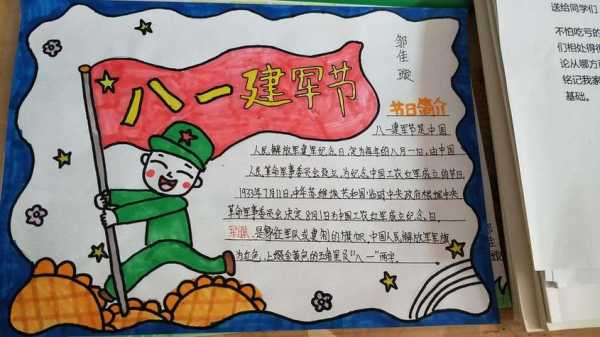 八一建军节
邹佳璇
节日简介
八一建军节是中国
人民解放军建军纪念日,定为每年的八月一日,由中国
人民革命军事委员会设立,为纪念中国工农红军成立的节日。
1933年7月11日,中华苏维埃共和国临时中央政府根据中央
革命军事委员会决定8月1日为中国工农红军成立纪念日。
军旗是象征军队或建制的旗帜。中国人民解放军军旗
为红色,上缀金黄色的五角星及"八一"两字。
送给同学们
不怕吃亏的
们相处得很
论从哪方
铭记我家
基础。